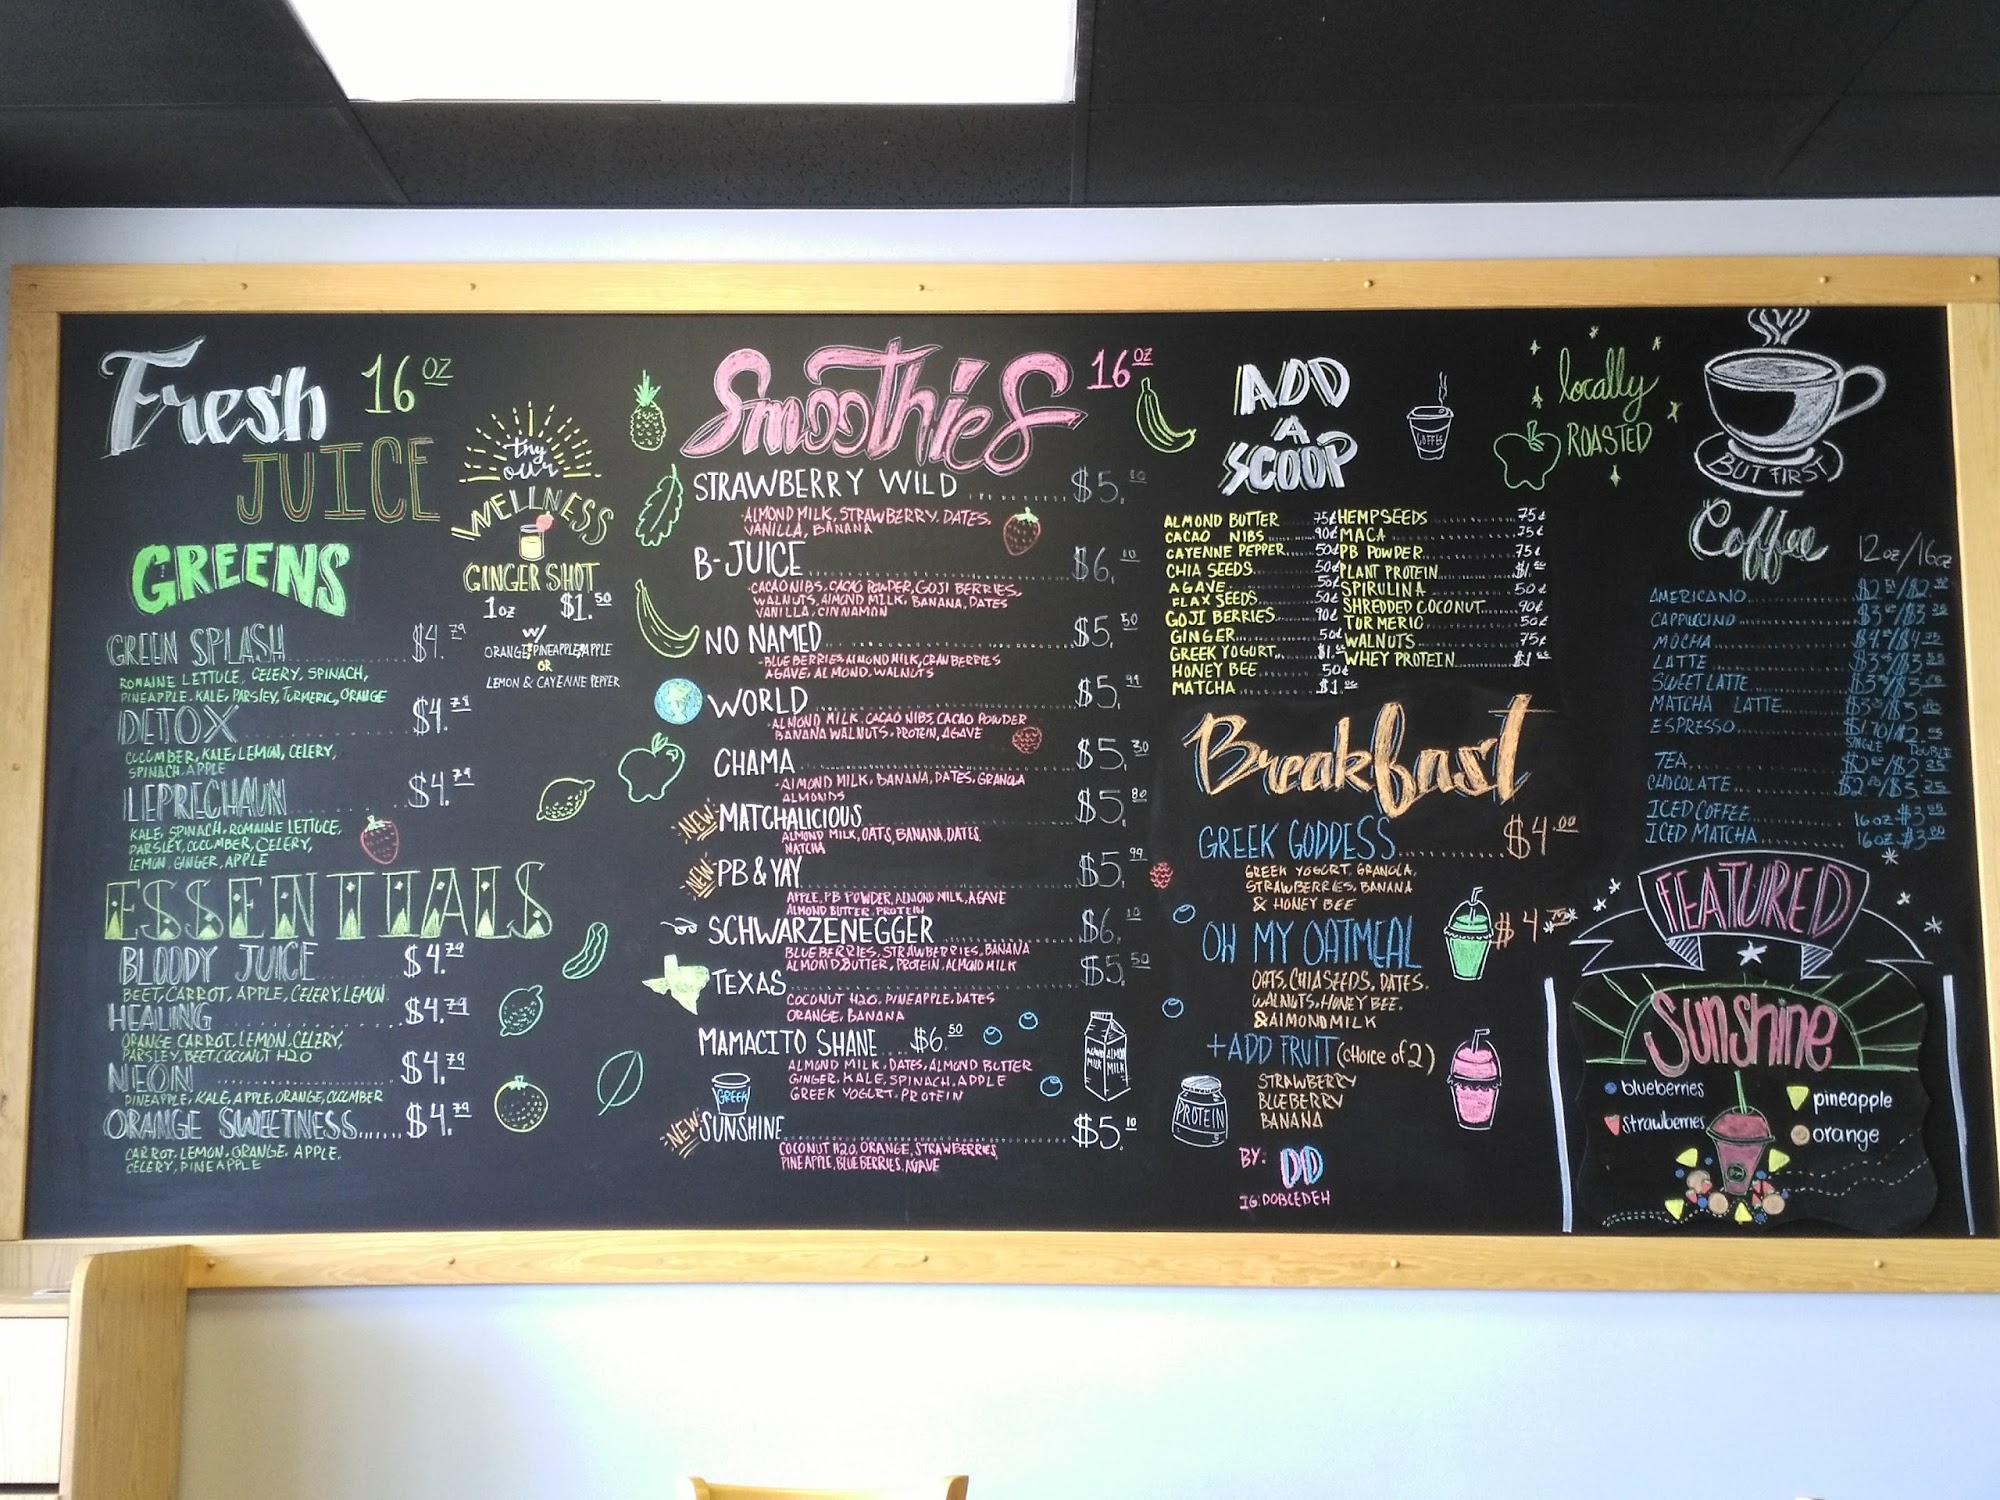 Fresh 16 oz
JUICE
try
our
WELLNESS
GINGER SHOT
1oz $1.50
w/
ORANGE, PINEAPPLE, APPLE
OR
LEMON & CAYENNE PEPPER
GREENS
GREEN SPLASH $4.79
ROMAINE LETTUCE, CELERY, SPINACH,
PINEAPPLE, KALE, PARSLEY, TURMERIC, ORANGE
DETOX $4.79
CUCUMBER, KALE, LEMON, CELERY,
SPINACH, APPLE
LEPRECHAUN $4.79
KALE, SPINACH, ROMAINE LETTUCE,
PARSLEY, CUCUMBER, CELERY,
LEMON, GINGER, APPLE
ESSENTIALS
BLOODY JUICE $4.79
BEET, CARROT, APPLE, CELERY, LEMON
HEALING $4.79
ORANGE CARROT, LEMON, CELERY,
PARSLEY, BEET, COCONUT H2O
NEON $4.79
PINEAPPLE, KALE, APPLE, ORANGE, CUCUMBER
ORANGE SWEETNESS $4.79
CARROT, LEMON, ORANGE, APPLE,
CELERY, PINEAPPLE
Smoothies 16 oz
STRAWBERRY WILD $5.
-ALMOND MILK, STRAWBERRY, DATES,
VANILLA, BANANA
B-JUICE $6.10
-CACAO NIBS, CACAO POWDER, GOJI BERRIES,
WALNUTS, ALMOND MILK, BANANA, DATES
VANILLA, CINNAMON
NO NAMED $5.50
-BLUEBERRIES ALMOND MILK, CRANBERRIES
AGAVE, ALMOND, WALNUTS
WORLD $5.99
-ALMOND MILK, CACAO NIBS, CACAO POWDER
BANANA WALNUTS, PROTEIN, AGAVE
CHAMA $5.30
-ALMOND MILK, BANANA, DATES, GRANOLA
ALMONDS
NEW MATCHALICIOUS $5.80
ALMOND MILK, OATS, BANANA, DATES,
MATCHA
NEW PB & YAY $5.99
APPLE, PB POWDER, ALMOND MILK, AGAVE
ALMOND BUTTER, PROTEIN
SCHWARZENEGGER $6.10
BLUEBERRIES, STRAWBERRIES, BANANA
ALMOND BUTTER, PROTEIN, ALMOND MILK
TEXAS $5.50
COCONUT H2O, PINEAPPLE, DATES
ORANGE, BANANA
MAMACITO SHANE $6.50
ALMOND MILK, DATES, ALMOND BUTTER
GINGER, KALE, SPINACH, APPLE
GREEK YOGURT, PROTEIN
GREEK
NEW SUNSHINE $5.10
COCONUT H2O, ORANGE, STRAWBERRIES,
PINEAPPLE, BLUEBERRIES, AGAVE
ALMOND MILK ALMOND MILK
PROTEIN
ADD
A
SCOOP
ALMOND BUTTER 75¢
CACAO NIBS 90¢
CAYENNE PEPPER 50¢
CHIA SEEDS 50¢
AGAVE 50¢
FLAX SEEDS 50¢
GOJI BERRIES 90¢
GINGER 50¢
GREEK YOGURT $1.
HONEY BEE 50¢
MATCHA $1.
HEMPSEEDS 75¢
MACA 75¢
PB POWDER 75¢
PLANT PROTEIN $1.
SPIRULINA 50¢
SHREDDED COCONUT 90¢
TURMERIC 50¢
WALNUTS 75¢
WHEY PROTEIN $1
COFFEE
locally
ROASTED
Breakfast
GREEK GODDESS $4.00
GREEK YOGURT, GRANOLA,
STRAWBERRIES, BANANA
& HONEY BEE
OH MY OATMEAL $4.75
OATS, CHIA SEEDS, DATES,
WALNUTS, HONEY BEE,
& ALMOND MILK
+ADD FRUIT (choice of 2)
STRAWBERRY
BLUEBERRY
BANANA
BY: DD
IG: DOBLEDEH
BUT FIRST
Coffee 12oz/16oz
AMERICANO
CAPPUCCINO
MOCHA
LATTE
SWEET LATTE
MATCHA LATTE
ESPRESSO
SINGLE DOUBLE
TEA
CHOCOLATE
ICED COFFEE 16oz
ICED MATCHA 16oz
FEATURED
Sunshine
blueberries
pineapple
strawberries
orange